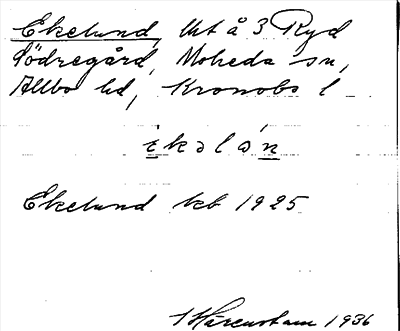 Ekelund, Ut å 3 Ryd
Södregård, Moheda sn,
Allbo hd, Kronobs l
ekəlón
Ekelund kb 1925
Härenstam 1936